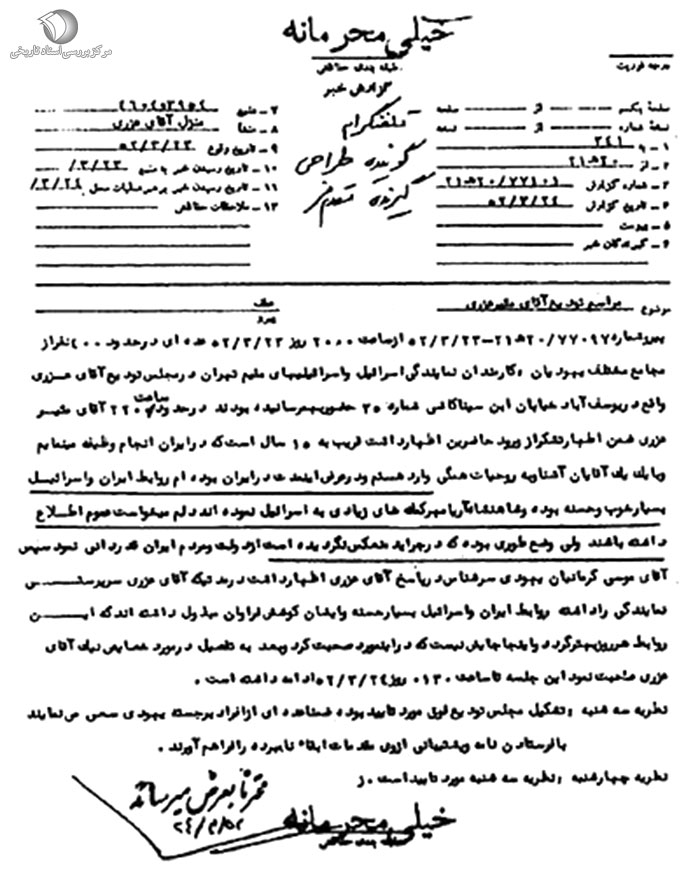 مرکز بررسی اسناد تاریخی
خیلی محرمانه
طبقه بندی حفاظتی
گزارش خبر
درجه فوریت
صفحه یکم از صفحه
نسخه شماره از نسخه
۱ – به ۳٤۱
۲ – از ۲۰ه۲۱
۳ – شماره گزارش ۲۰/۷۷۱۰۱ه۲۱
٤ – تاریخ گزارش ۵۲/۳/۲٤
۵ – پیوست
۶ – گیرندگان خبر
تلفنگرام
گوینده طراحی
گیرنده
۷ – منبع
۸ – منشأ منزل آقای عزری
۹ – تاریخ وقوع ۵۲/۳/۲۳
۱۰ – تاریخ رسیدن خبر به منبع ۳/۲۳/
۱۱ – تاریخ رسیدن خبر برهبر عملیات محل ۳/۲٤/
۱۲ – ملاحظات حفاظتی
موضوع مراسم تودیع آقای مئیر عزری
عطف
پیرو
پیرو شماره ۲۰/۷۷۰۹۷ه۲۱–۵۲/۳/۲۳ از ساعت ۲۰۰۰ روز ۵۲/۳/۲۳ عده ای در حدود ۴۰۰ نفر از
مجامع مختلف یهودیان ، کارمندان نمایندگی اسرائیل و اسرائیلیهای مقیم تهران در مجلس تودیع آقای عزری
واقع در یوسف آباد خیابان ابن سینا کاشی شماره ۳۵ حضور بهم رسانیده بودند در حدود ساعت ۲۲۰۰ آقای مئیر
عزری ضمن اظهار تشکر از ورود حاضرین اظهار داشت قریب به ۱۵ سال است که در ایران انجام وظیفه مینمایم
و با یک یک آقایان آشنا و به روحیات همگی وارد هستم و در عرض اینمدت در ایران بوده ام روابط ایران و اسرائیل
بسیار خوب و حسنه بوده و شاهنشاه آریامهر کمک های زیادی به اسرائیل نموده اند دلم میخواست عموم اطلاع
داشته باشند ولی وضع طوری بوده که در جراید منعکس نگردیده است از دولت و مردم ایران قدردانی نمود سپس
آقای موسی کرمانیان یهودی سرشناس در پاسخ آقای عزری اظهار داشت در مدتیکه آقای عزری سرپرستی
نمایندگی را داشته روابط ایران و اسرائیل بسیار حسنه و ایشان کوشش فراوان مبذول داشته اند که این
روابط هر روز بهتر گردد و اینجا جایش نیست که در اینمورد صحبت کرد و بعد به تفصیل در مورد خصایص نیک آقای
عزری صحبت نمود این جلسه تا ساعت ۰۱۳۰ روز ۵۲/۳/۲٤ ادامه داشته است .
نظریه سه شنبه : تشکیل مجلس تودیع فوق مورد تایید بوده ضمنا عده ای از افراد برجسته یهودی سعی می نمایند
با فرستادن نامه و پشتیبانی از وی مقدمات ابقاء نامبرده را فراهم آورند .
نظریه چهارشنبه : نظریه سه شنبه مورد تایید است . ز
محترماً بعرض میرساند
۲٤/۳/۵۲
خیلی محرمانه
طبقه بندی حفاظتی